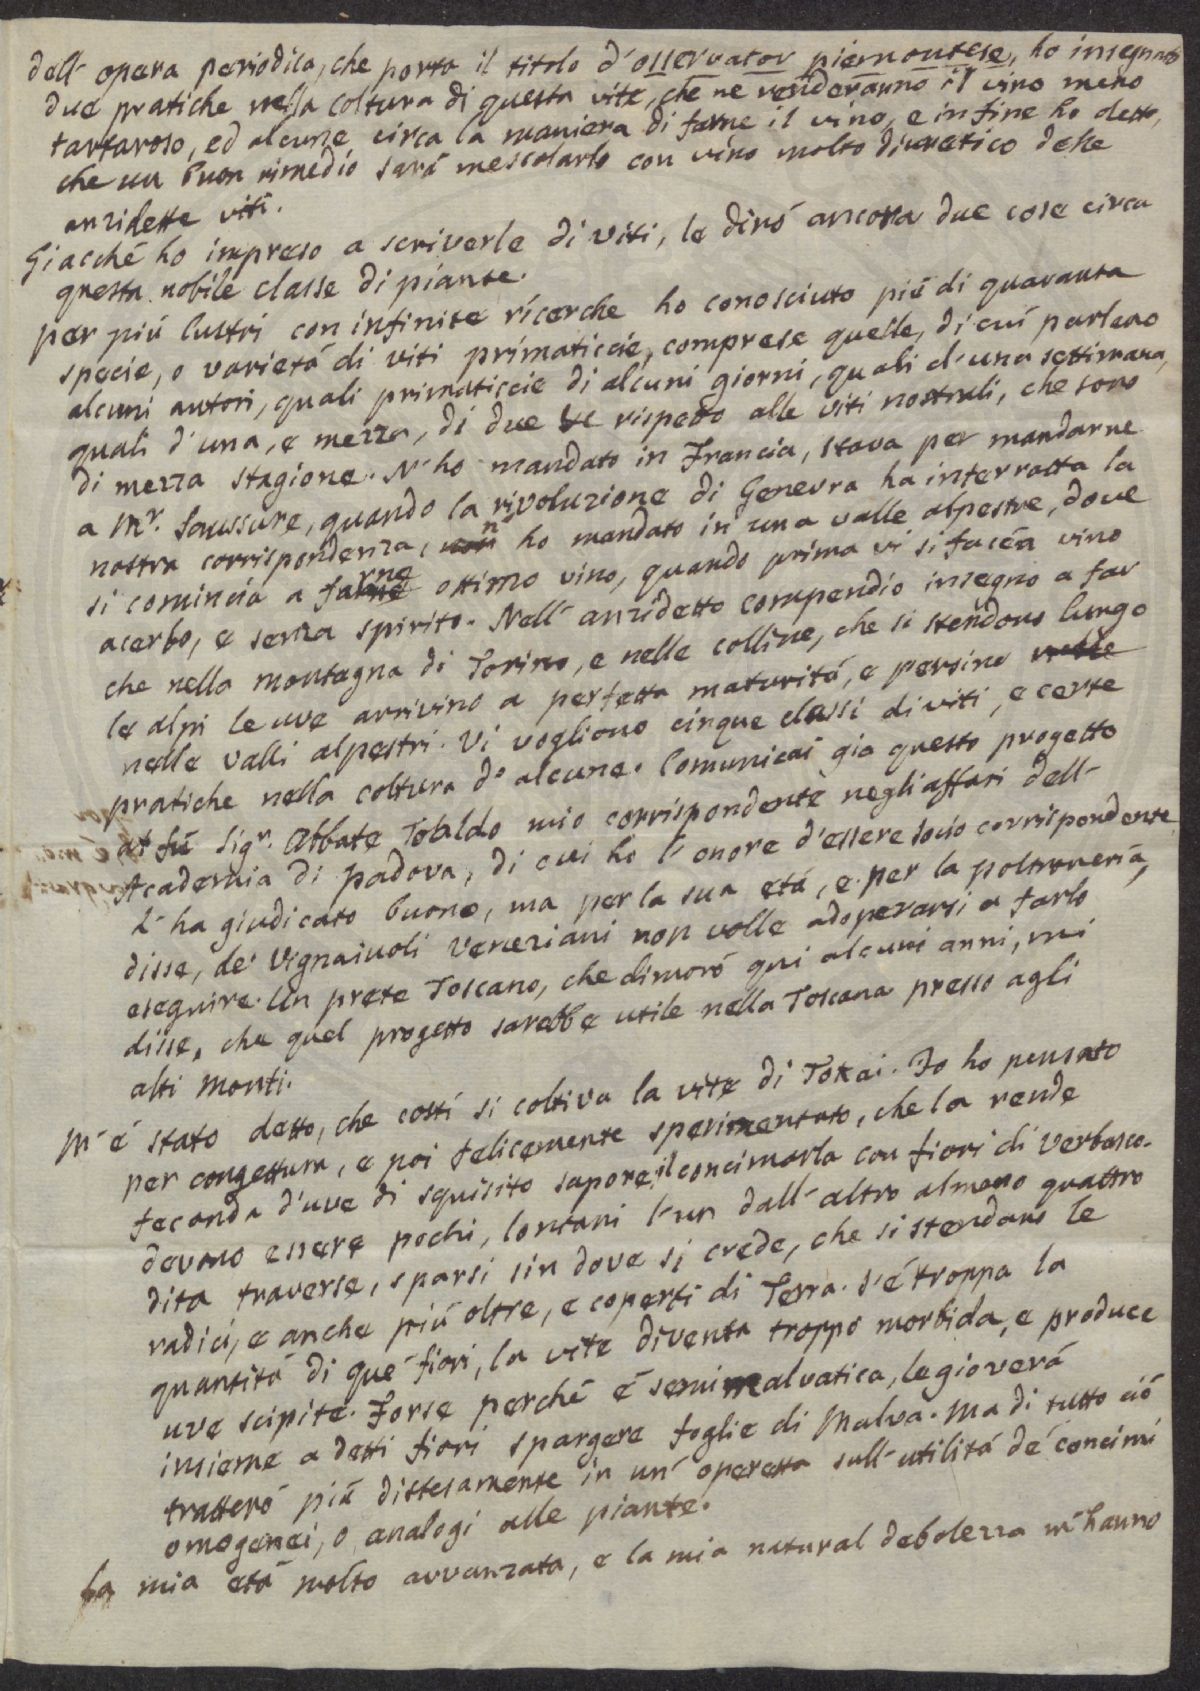 dell' opera periodica, che porta il titolo d'osservator piemontese, ho insegnato
due pratiche nella coltura di questa vite, che ne renderanno il vino meno
tartaroso, ed alcune circa la maniera di farne il vino, e infine ho detto,
che un buon rimedio sará mescolarlo con vino molto diuretico delle
anzidette viti.
Giacché ho impreso a scriverle di viti, le diró ancora due cose circa
questa nobile classe di piante.
per piú lustri con infinite ricerche ho conosciuto piú di quaranta
specie, o varietá di viti primaticcie, comprese quelle, di cui parlano
alcuni autori, quali primaticcie di alcuni giorni, quali d'una settimana,
quali d'una, e mezza, di due rispetto alle viti nostrali, che sono
di mezza stagione. N'ho mandato in Francia, stava per mandarne
a Mr. Saussure, quando la rivoluzione di Genevra ha interrotta la
nostra corrispondenza, n' ho mandato in una valle alpestre, dove
si comincia a farne ottimo vino, quando prima vi si facea vino
acerbo, e senza spirito. Nell' anzidetto compendio insegno a far
che nella montagna di Torino, e nelle colline, che si stendono lungo
le alpi le uve arrivino a perfetta maturitá, e persino nelle
nelle valli alpestri. Vi vogliono cinque classi di viti, e certe
pratiche nella coltura d' alcune. Comunicai giá questo progetto
al fú Sigr. Abbate Toaldo mio corrispondente negli affari dell'
Academia di Padova, di cui ho l' onore d'essere socio corrispondente
L' ha giudicato buono, ma per la sua etá, e per la poltroneria,
disse, de' vignaiuoli Veneziani non volle adoperarsi a farlo
eseguire. Un prete Toscano, che dimoró qui alcuni anni, mi
disse, che quel progetto sarebbe utile nella Toscana presso agli
alti monti.
M' é stato detto, che costí si coltiva la vite di Tokai. Io ho pensato
per congettura, e poi felicemente sperimentato, che la rende
feconda d'uve di squisito sapore il concimarla con fiori di Verbasco.
devono essere pochi, lontani l' un dall' altro almeno quattro
dita traverse, sparsi sin dove si crede, che si stendano le
radici, e anche piú oltre, e coperti di Terra. s' é troppa la
quantitá di qué fiori, la vite diventa troppo morbida, e produce
uve scipite. Forse perché é semimalvatica, le gioverá
insieme a detti fiori spargere foglie di Malva. Ma di tutto ció
tratteró piú distesamente in un' operetta sull' utilitá dé concimi
omogenei, o analogi alle piante.
La mia etá molto avvanzata, e la mia natural debolezza m' hanno